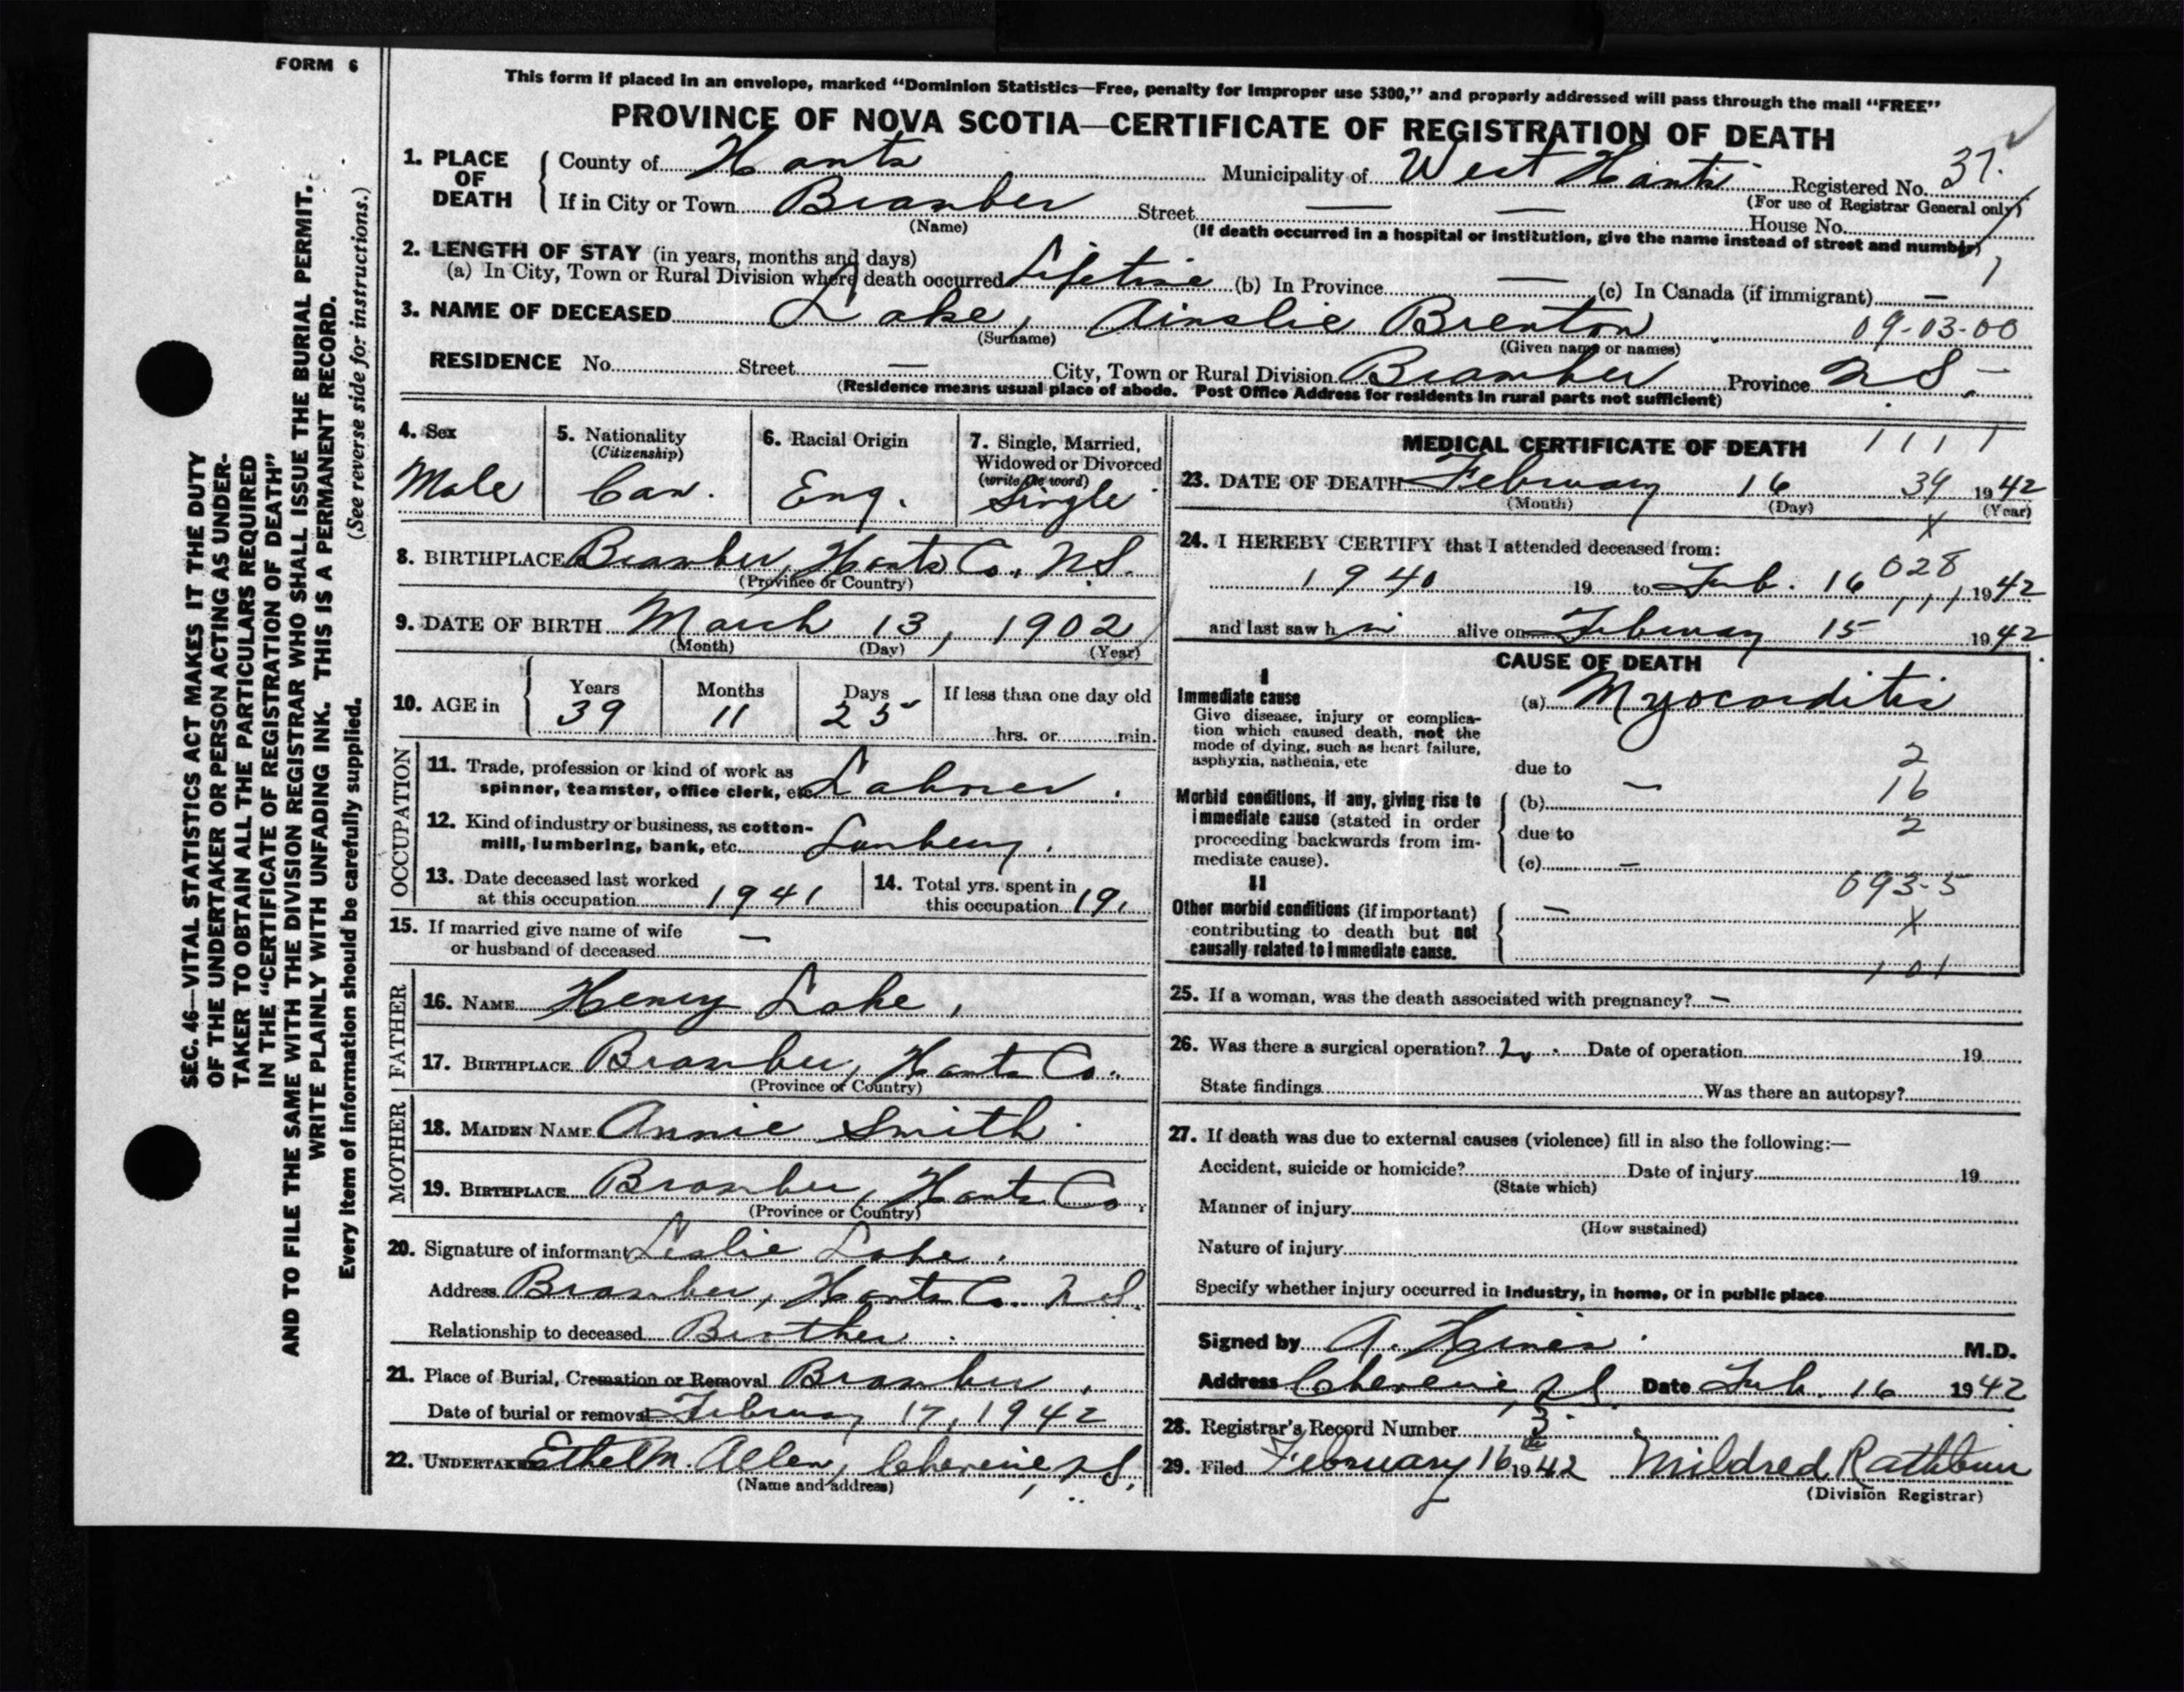 FORM 6
This form if placed in an envelope, marked "Dominion Statistics—Free, penalty for improper use $300," and properly addressed will pass through the mail "FREE"
PROVINCE OF NOVA SCOTIA—CERTIFICATE OF REGISTRATION OF DEATH
1. PLACE OF DEATH County of Hants Municipality of West Hants Registered No. 37.
(For use of Registrar General only)
If in City or Town Bramber Street — — House No.
(Name) (If death occurred in a hospital or institution, give the name instead of street and number)
2. LENGTH OF STAY (in years, months and days)
(a) In City, Town or Rural Division where death occurred Lifetime (b) In Province — (c) In Canada (if immigrant) —
1
3. NAME OF DECEASED Lake, Ainslie Brenton 09-03-00
(Surname) (Given name or names)
RESIDENCE No. Street — City, Town or Rural Division Bramber Province N S.
(Residence means usual place of abode. Post Office Address for residents in rural parts not sufficient)
4. Sex
Male
5. Nationality
(Citizenship)
Can.
6. Racial Origin
Eng.
7. Single, Married,
Widowed or Divorced
(write the word)
Single
8. BIRTHPLACE Bramber, Hants Co. N.S.
(Province or Country)
9. DATE OF BIRTH March 13, 1902
(Month) (Day) (Year)
10. AGE in Years Months Days If less than one day old
39 11 25
hrs. or min.
OCCUPATION
11. Trade, profession or kind of work as
spinner, teamster, office clerk, etc. Laborer.
12. Kind of industry or business, as cotton-
mill, lumbering, bank, etc.
13. Date deceased last worked
at this occupation 1941
14. Total yrs. spent in
this occupation
15. If married give name of wife
or husband of deceased —
FATHER
16. NAME Henry Lake,
17. BIRTHPLACE Bramber, Hants Co.
(Province or Country)
MOTHER
18. MAIDEN NAME Annie Smith
19. BIRTHPLACE Bramber, Hants Co.
(Province or Country)
20. Signature of informant Leslie Lake.
Address Bramber, Hants Co. N S.
Relationship to deceased Brother.
21. Place of Burial, Cremation or Removal Bramber,
Date of burial or removal February 17, 1942
22. UNDERTAKER Ethel M. Allen, Cheverie, N.S.
(Name and address)
MEDICAL CERTIFICATE OF DEATH 1 1 1 1
23. DATE OF DEATH February 16 39 1942
(Month) (Day) (Year)
X
24. I HEREBY CERTIFY that I attended deceased from:
028
1940 19 to Feb. 16 1942
1 1 1
and last saw h im alive on February 15 1942
CAUSE OF DEATH
I
Immediate cause
Give disease, injury or complica-
tion which caused death, not the
mode of dying, such as heart failure,
asphyxia, asthenia, etc
(a) Myocarditis
2
due to
Morbid conditions, if any, giving rise to
immediate cause (stated in order
proceeding backwards from im-
mediate cause).
(b) — 16
due to 2
(c) —
093-5
II
Other morbid conditions (if important)
contributing to death but not
causally related to immediate cause.
— X
101
25. If a woman, was the death associated with pregnancy? —
26. Was there a surgical operation? Date of operation 19
State findings Was there an autopsy?
27. If death was due to external causes (violence) fill in also the following:—
Accident, suicide or homicide? Date of injury 19
(State which)
Manner of injury
(How sustained)
Nature of injury
Specify whether injury occurred in industry, in home, or in public place
Signed by A. M.D.
Address Cheverie, N S. Date Feb. 16 1942
28. Registrar's Record Number 3.
29. Filed February 16th 1942 Mildred Rathbun
(Division Registrar)
SEC. 46—VITAL STATISTICS ACT MAKES IT THE DUTY
OF THE UNDERTAKER OR PERSON ACTING AS UNDER-
TAKER TO OBTAIN ALL THE PARTICULARS REQUIRED
IN THE "CERTIFICATE OF REGISTRATION OF DEATH"
AND TO FILE THE SAME WITH THE DIVISION REGISTRAR WHO SHALL ISSUE THE BURIAL PERMIT.
WRITE PLAINLY WITH UNFADING INK. THIS IS A PERMANENT RECORD.
Every item of information should be carefully supplied. (See reverse side for instructions.)